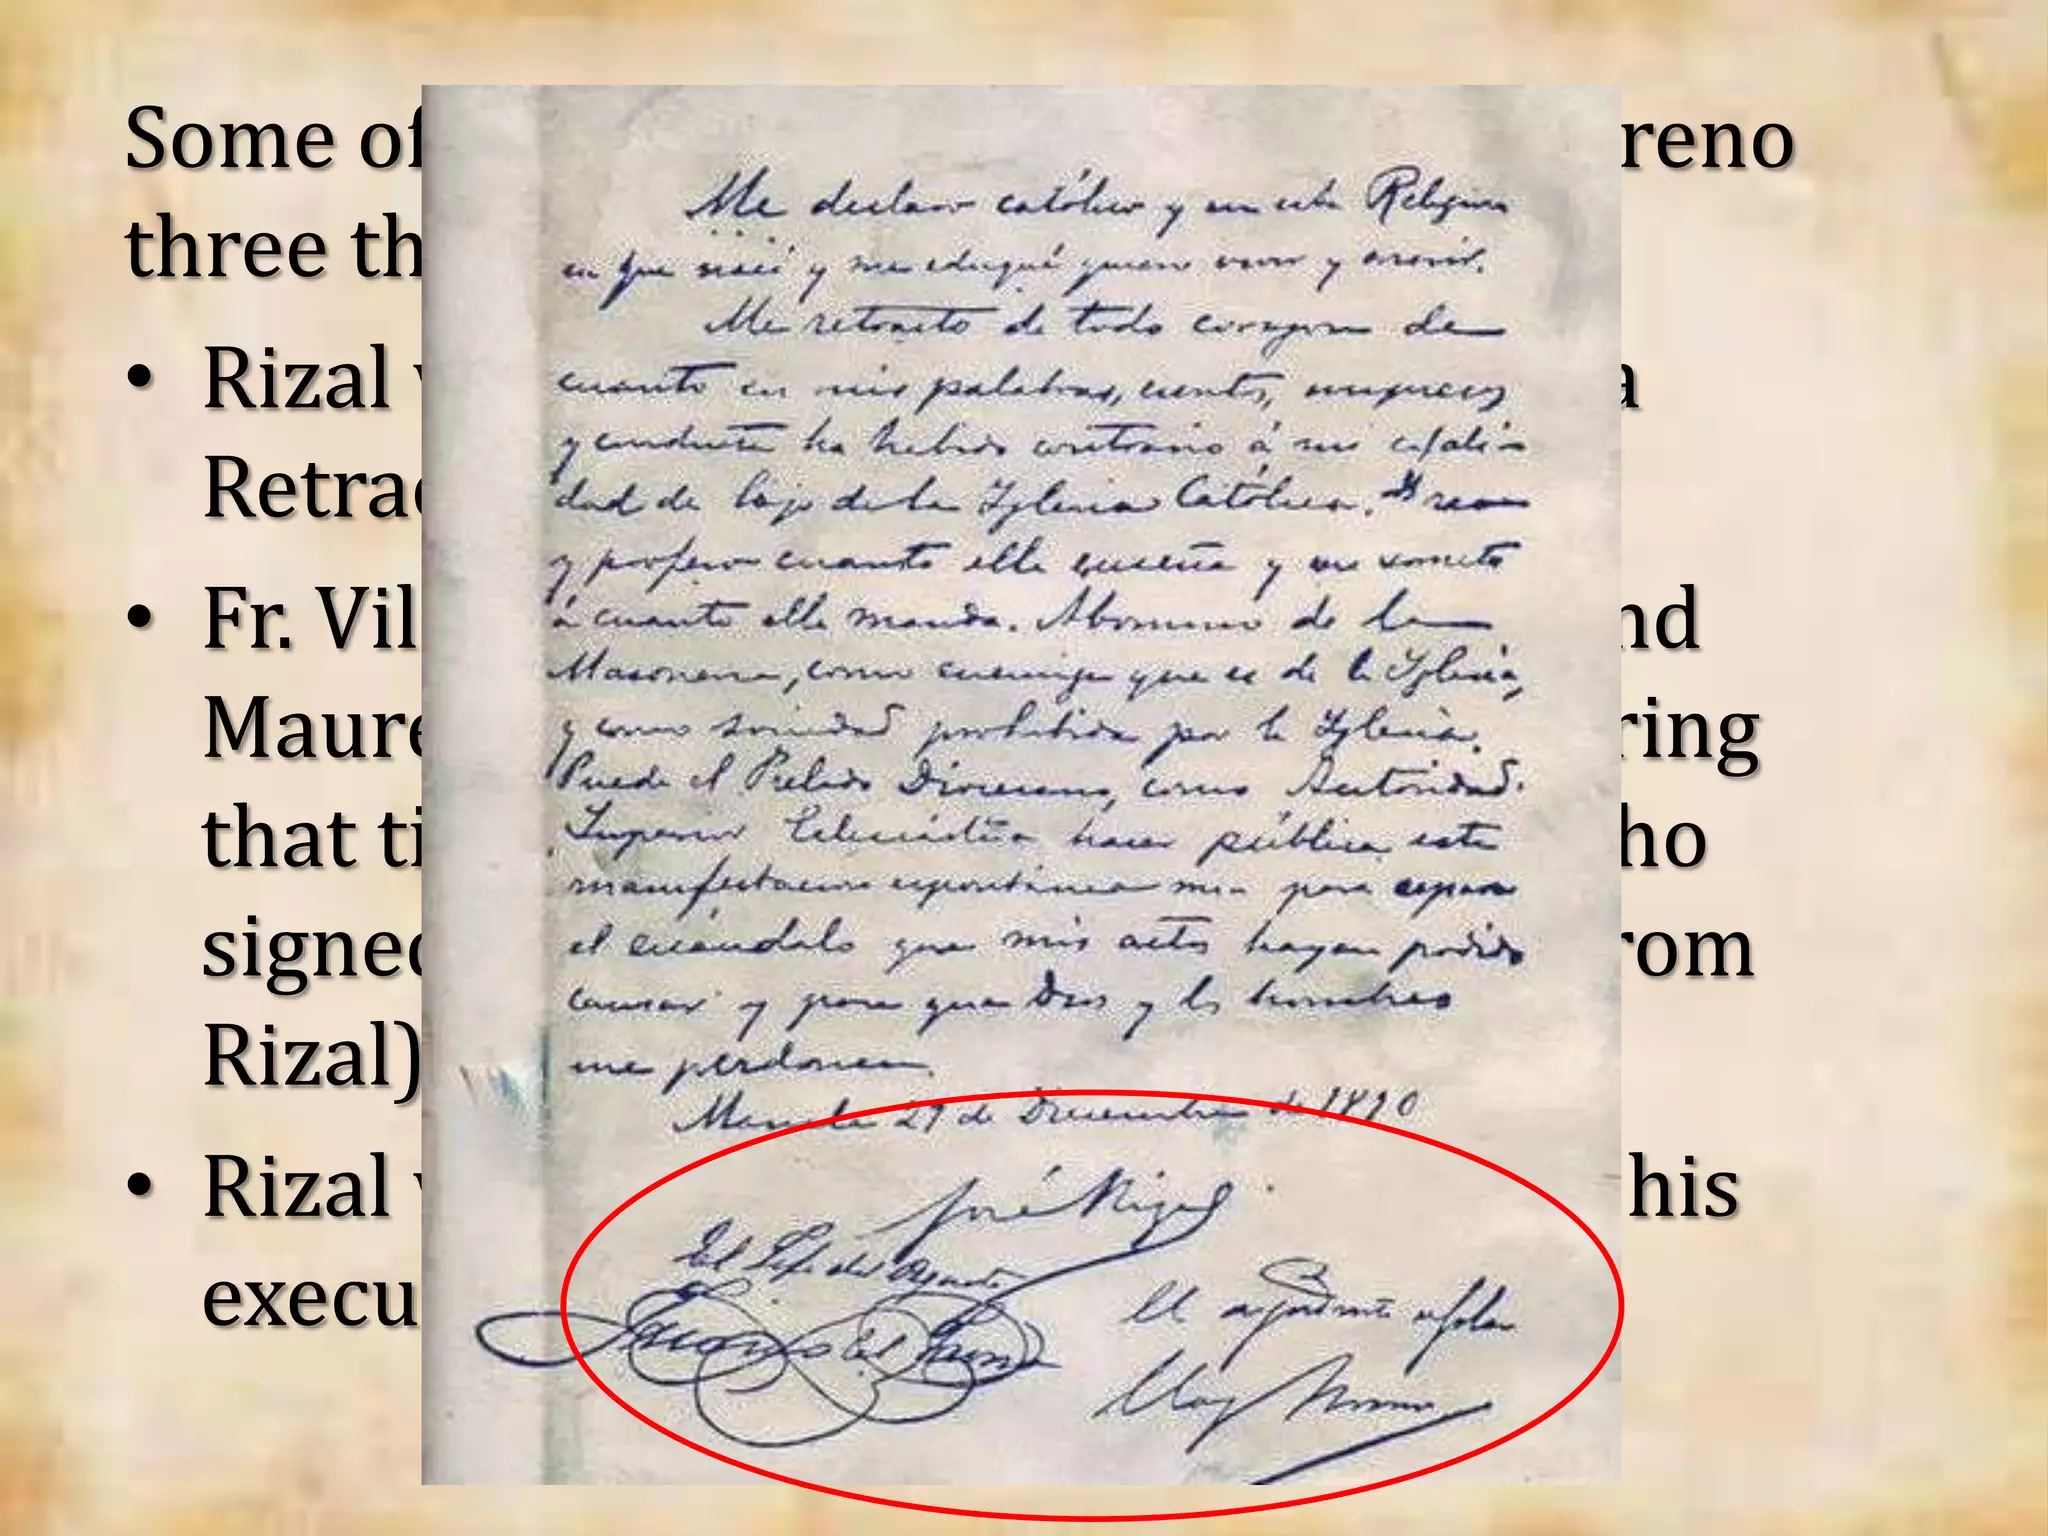 Some of reno
three th
• Rizal a
Retrac
• Fr. Vil nd
Maure ring
that ti ho
signed rom
Rizal)
• Rizal his
execu
Me declaro católico y en esta Religion
en que nací y me eduqué quiero vivir y morir.
Me retracto de todo corazon de
cuanto en mis palabras, escritos, impresos
y conducta ha habido contrario á mi cali-
dad de hijo de la Iglesia Católica. Creo
y profeso cuanto ella enseña y me someto
á cuanto ella manda. Abomino de la
Masoneria, como enemiga que es de la Iglesia,
y como sociedad prohibida por la Iglesia.
Puede el Prelado Diocesano, como Autoridad
Superior Eclesiástica hacer pública esta
manifestacion espontánea mia para reparar
el escándalo que mis actos hayan podido
causar y para que Dios y los hombres
me perdonen.
Manila 29 de Diciembre de 1890
José Rizal
El Jefe del Piquete
Juan del Fresno
El ayudante de Plaza
Eloy Moure